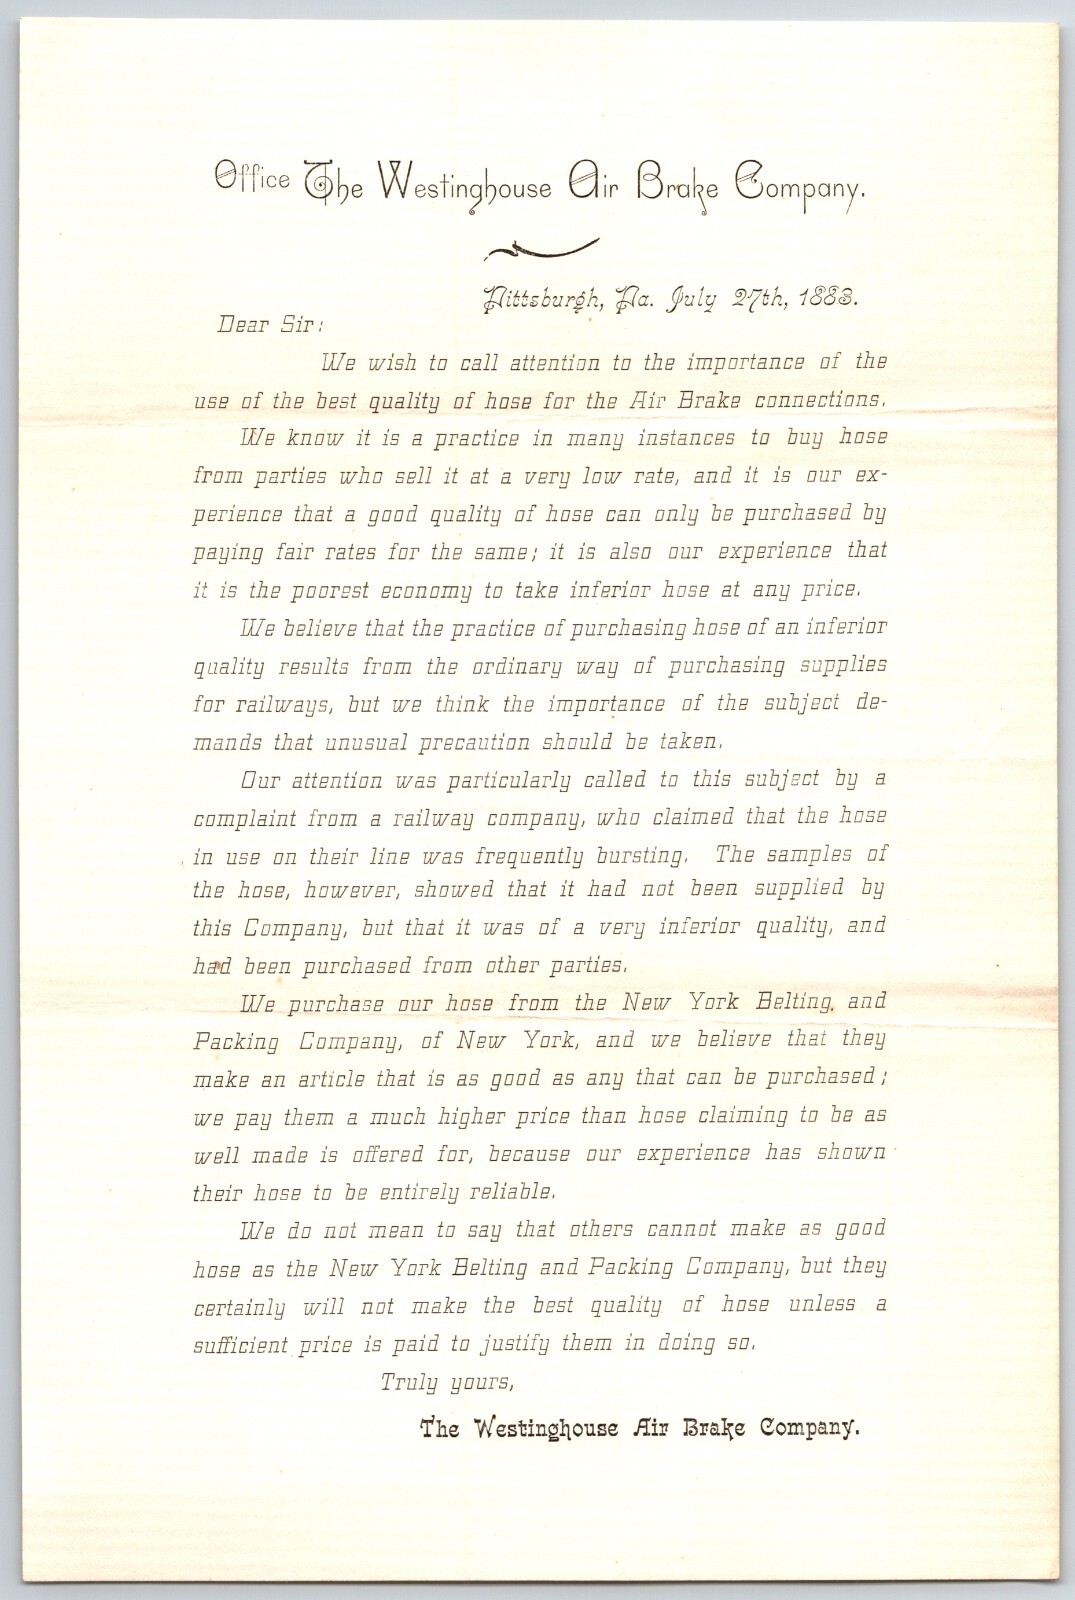 Office The Westinghouse Air Brake Company.
Pittsburgh, Pa. July 27th, 1883.
Dear Sir:
We wish to call attention to the importance of the
use of the best quality of hose for the Air Brake connections.
We know it is a practice in many instances to buy hose
from parties who sell it at a very low rate, and it is our ex-
perience that a good quality of hose can only be purchased by
paying fair rates for the same; it is also our experience that
it is the poorest economy to take inferior hose at any price.
We believe that the practice of purchasing hose of an inferior
quality results from the ordinary way of purchasing supplies
for railways, but we think the importance of the subject de-
mands that unusual precaution should be taken.
Our attention was particularly called to this subject by a
complaint from a railway company, who claimed that the hose
in use on their line was frequently bursting. The samples of
the hose, however, showed that it had not been supplied by
this Company, but that it was of a very inferior quality, and
had been purchased from other parties.
We purchase our hose from the New York Belting and
Packing Company, of New York, and we believe that they
make an article that is as good as any that can be purchased;
we pay them a much higher price than hose claiming to be as
well made is offered for, because our experience has shown
their hose to be entirely reliable.
We do not mean to say that others cannot make as good
hose as the New York Belting and Packing Company, but they
certainly will not make the best quality of hose unless a
sufficient price is paid to justify them in doing so.
Truly yours,
The Westinghouse Air Brake Company.